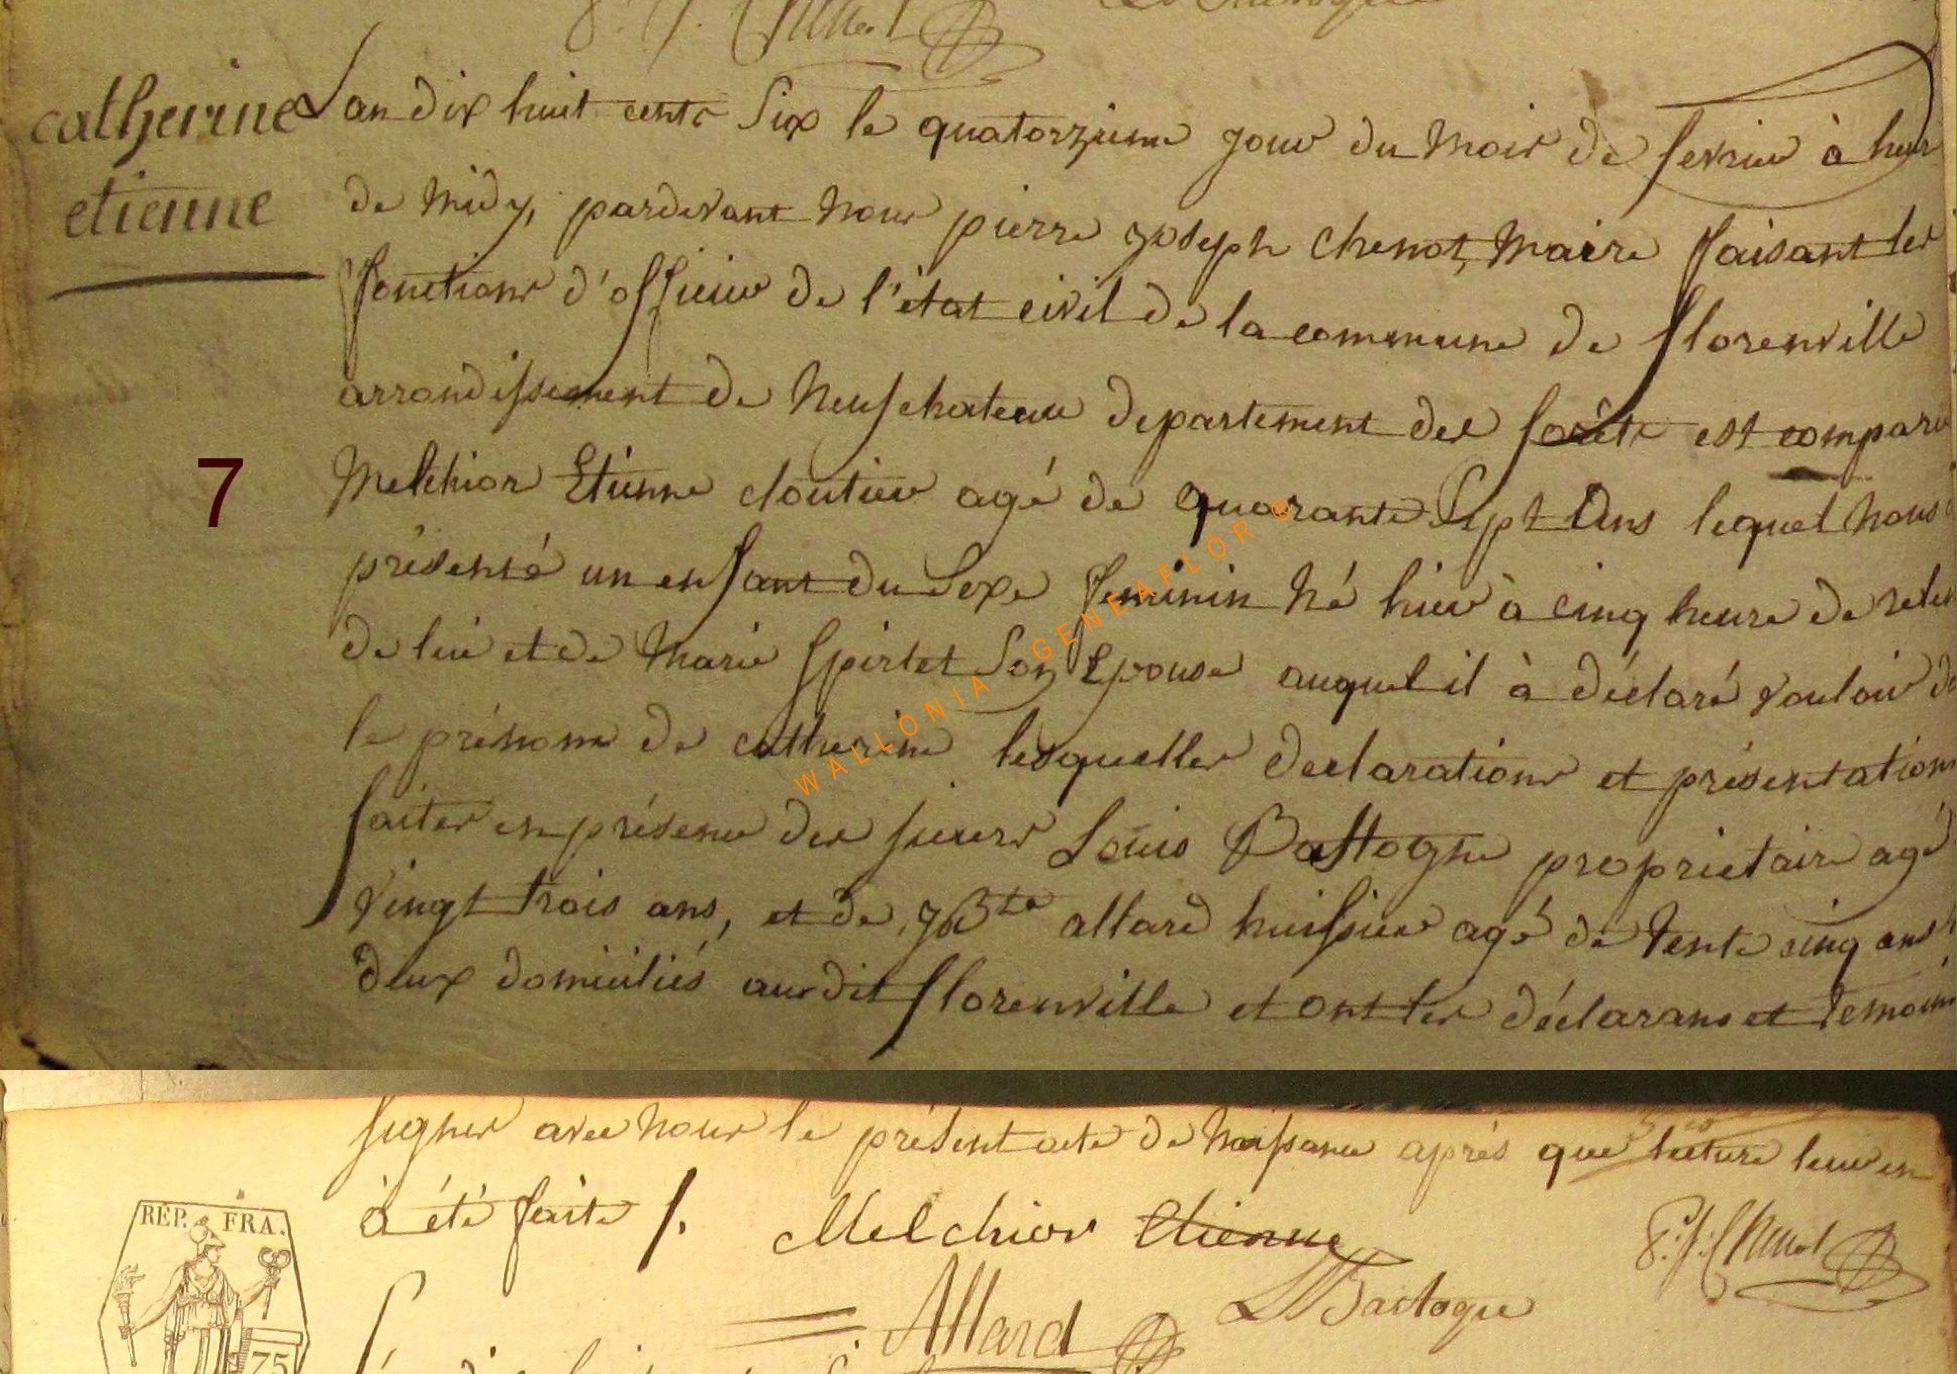 P. J. Chenot
catherine
etienne
7
L'an dix huit cents six le quatorzieme jour du mois de fevrier à heur
de midy, pardevant nous pierre joseph Chenot, Maire faisant les
fonctions d'officier de l'état civil de la commune de florenville
arrondissement de neufchateau departement des forêts est comparu
Melchior Etienne cloutier agé de quarante Sept Ans lequel nous
présenté un enfant du Sexe feminin né hier à cinq heure de relev
de lui et de Marie Spirlet Son Epouse auquel il à déclaré vouloir
le prénom de catherine lesquelles declarations et présentations
faites en présence des sieurs Louis Bastogne proprietaire agé
vingt trois ans, et de, jBte allard huissier agé de trente cinq ans
deux domiciliés audit florenville et ont les déclarans et temoins
signer avec nous le présent acte de naissance aprés que lecture leur en
à été faite /.
Melchior Etienne
P. J. Chenot
Allard
L Bastogne
REP. FRA.
75
WALLONIA - GENEAFLOR ©